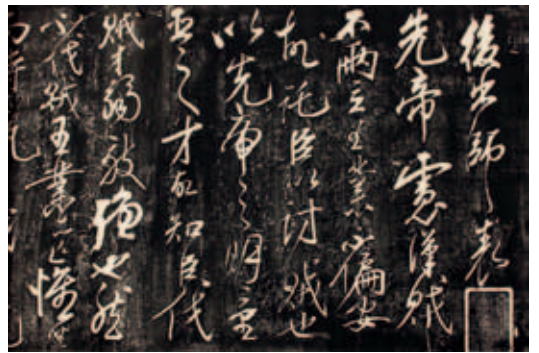 後出師表
先帝慮漢賊
不兩立王業不偏安
故託臣以討賊也
以先帝之明量
臣之才故知臣伐
賊才弱敵強也然
不伐賊王業亦亡惟坐